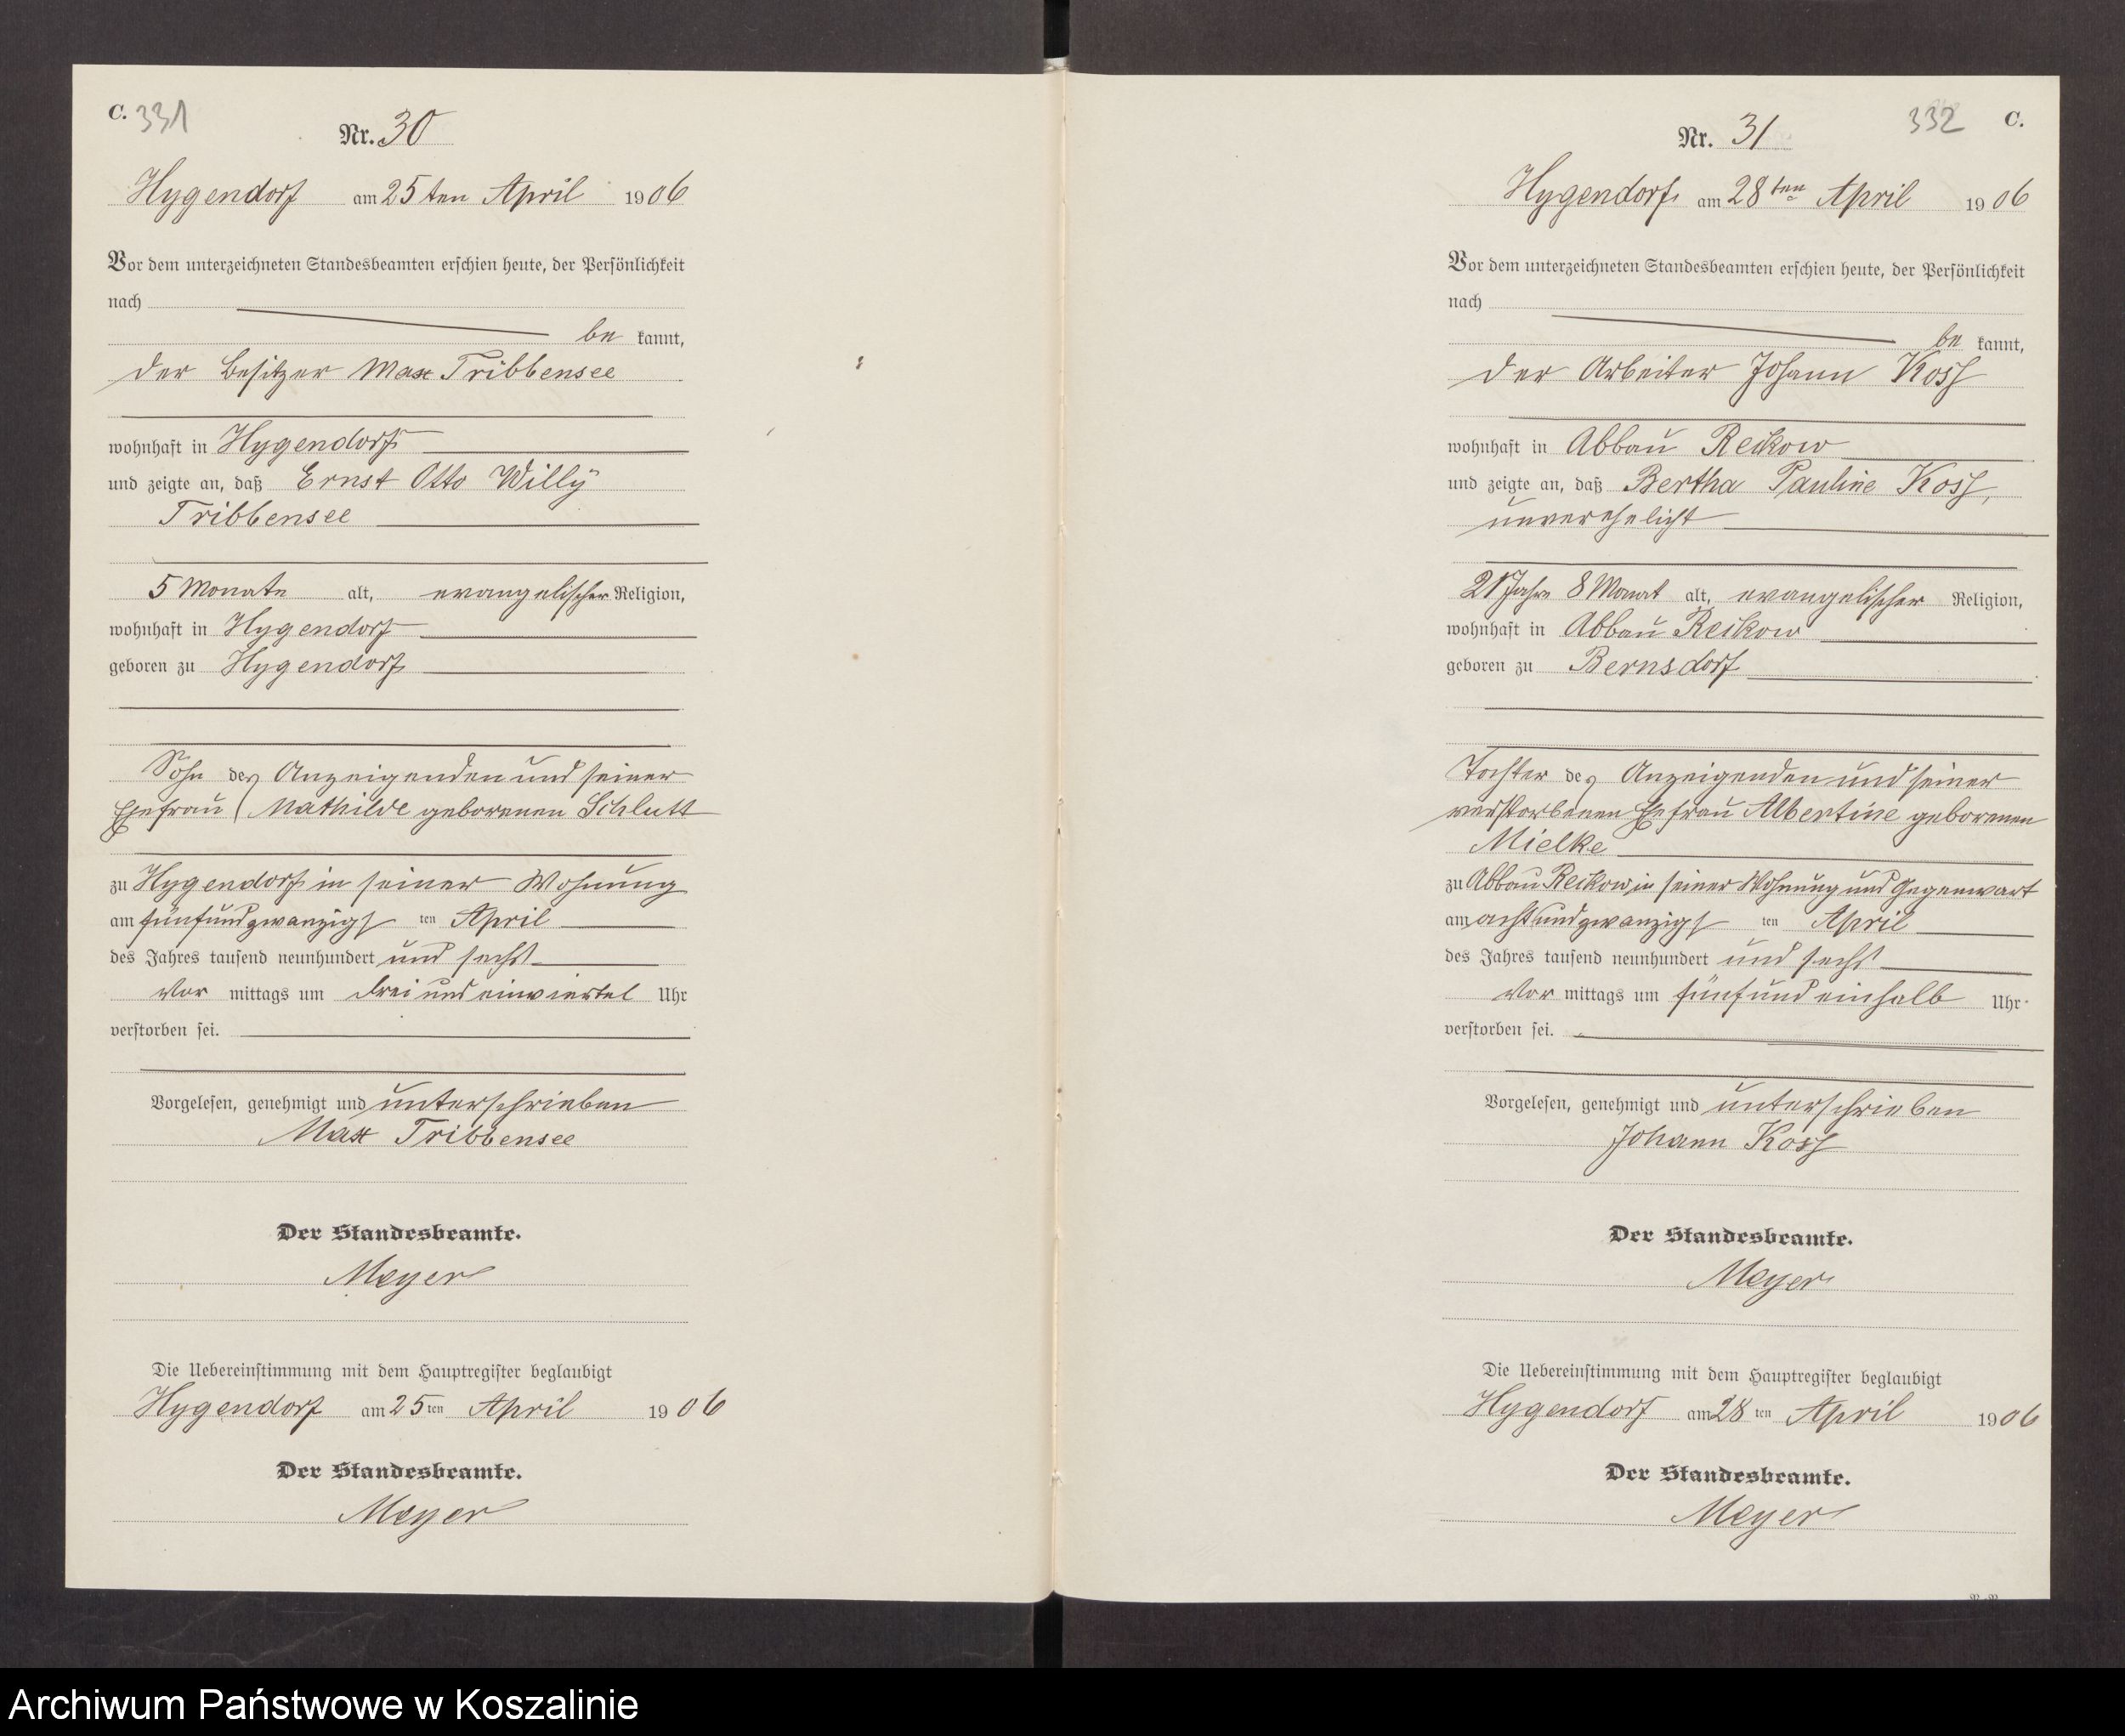 C. 331
Nr. 30
Hygendorf am 25ten April 1906
Vor dem unterzeichneten Standesbeamten erschien heute, der Persönlichkeit
nach
be kannt,
der Besitzer Max Tribbensee
wohnhaft in Hygendorf
und zeigte an, daß Ernst Otto Willy
Tribbensee
5 Monate alt, evangelischer Religion,
wohnhaft in Hygendorf
geboren zu Hygendorf
Sohn des Anzeigenden und seiner
Ehefrau Mathilde geborenen Schlutt
zu Hygendorf in seiner Wohnung
am fünfundzwanzigsten April
des Jahres tausend neunhundert und sechs
Vor mittags um drei und einviertel Uhr
verstorben sei.
Vorgelesen, genehmigt und unterschrieben
Max Tribbensee
Der Standesbeamte.
Meyer
Die Uebereinstimmung mit dem Hauptregister beglaubigt
Hygendorf am 25ten April 1906
Der Standesbeamte.
Meyer
332 C.
Nr. 31
Hygendorf am 28ten April 1906
Vor dem unterzeichneten Standesbeamten erschien heute, der Persönlichkeit
nach
be kannt,
der Arbeiter Johann Koss
wohnhaft in Abbau Reikow
und zeigte an, daß Bertha Pauline Koss,
unverehelicht
21 Jahre 8 Monat alt, evangelischer Religion,
wohnhaft in Abbau Reikow
geboren zu Bernsdorf
Tochter des Anzeigenden und seiner
verstorbenen Ehefrau Albertine geborenen
Mielke
zu Abbau Reikow, in seiner Wohnung und Gegenwart
am achtundzwanzigsten April
des Jahres tausend neunhundert und sechs
Vor mittags um fünf und einhalb Uhr
verstorben sei.
Vorgelesen, genehmigt und unterschrieben
Johann Koss
Der Standesbeamte.
Meyer
Die Uebereinstimmung mit dem Hauptregister beglaubigt
Hygendorf am 28ten April 1906
Der Standesbeamte.
Meyer
Archiwum Państwowe w Koszalinie